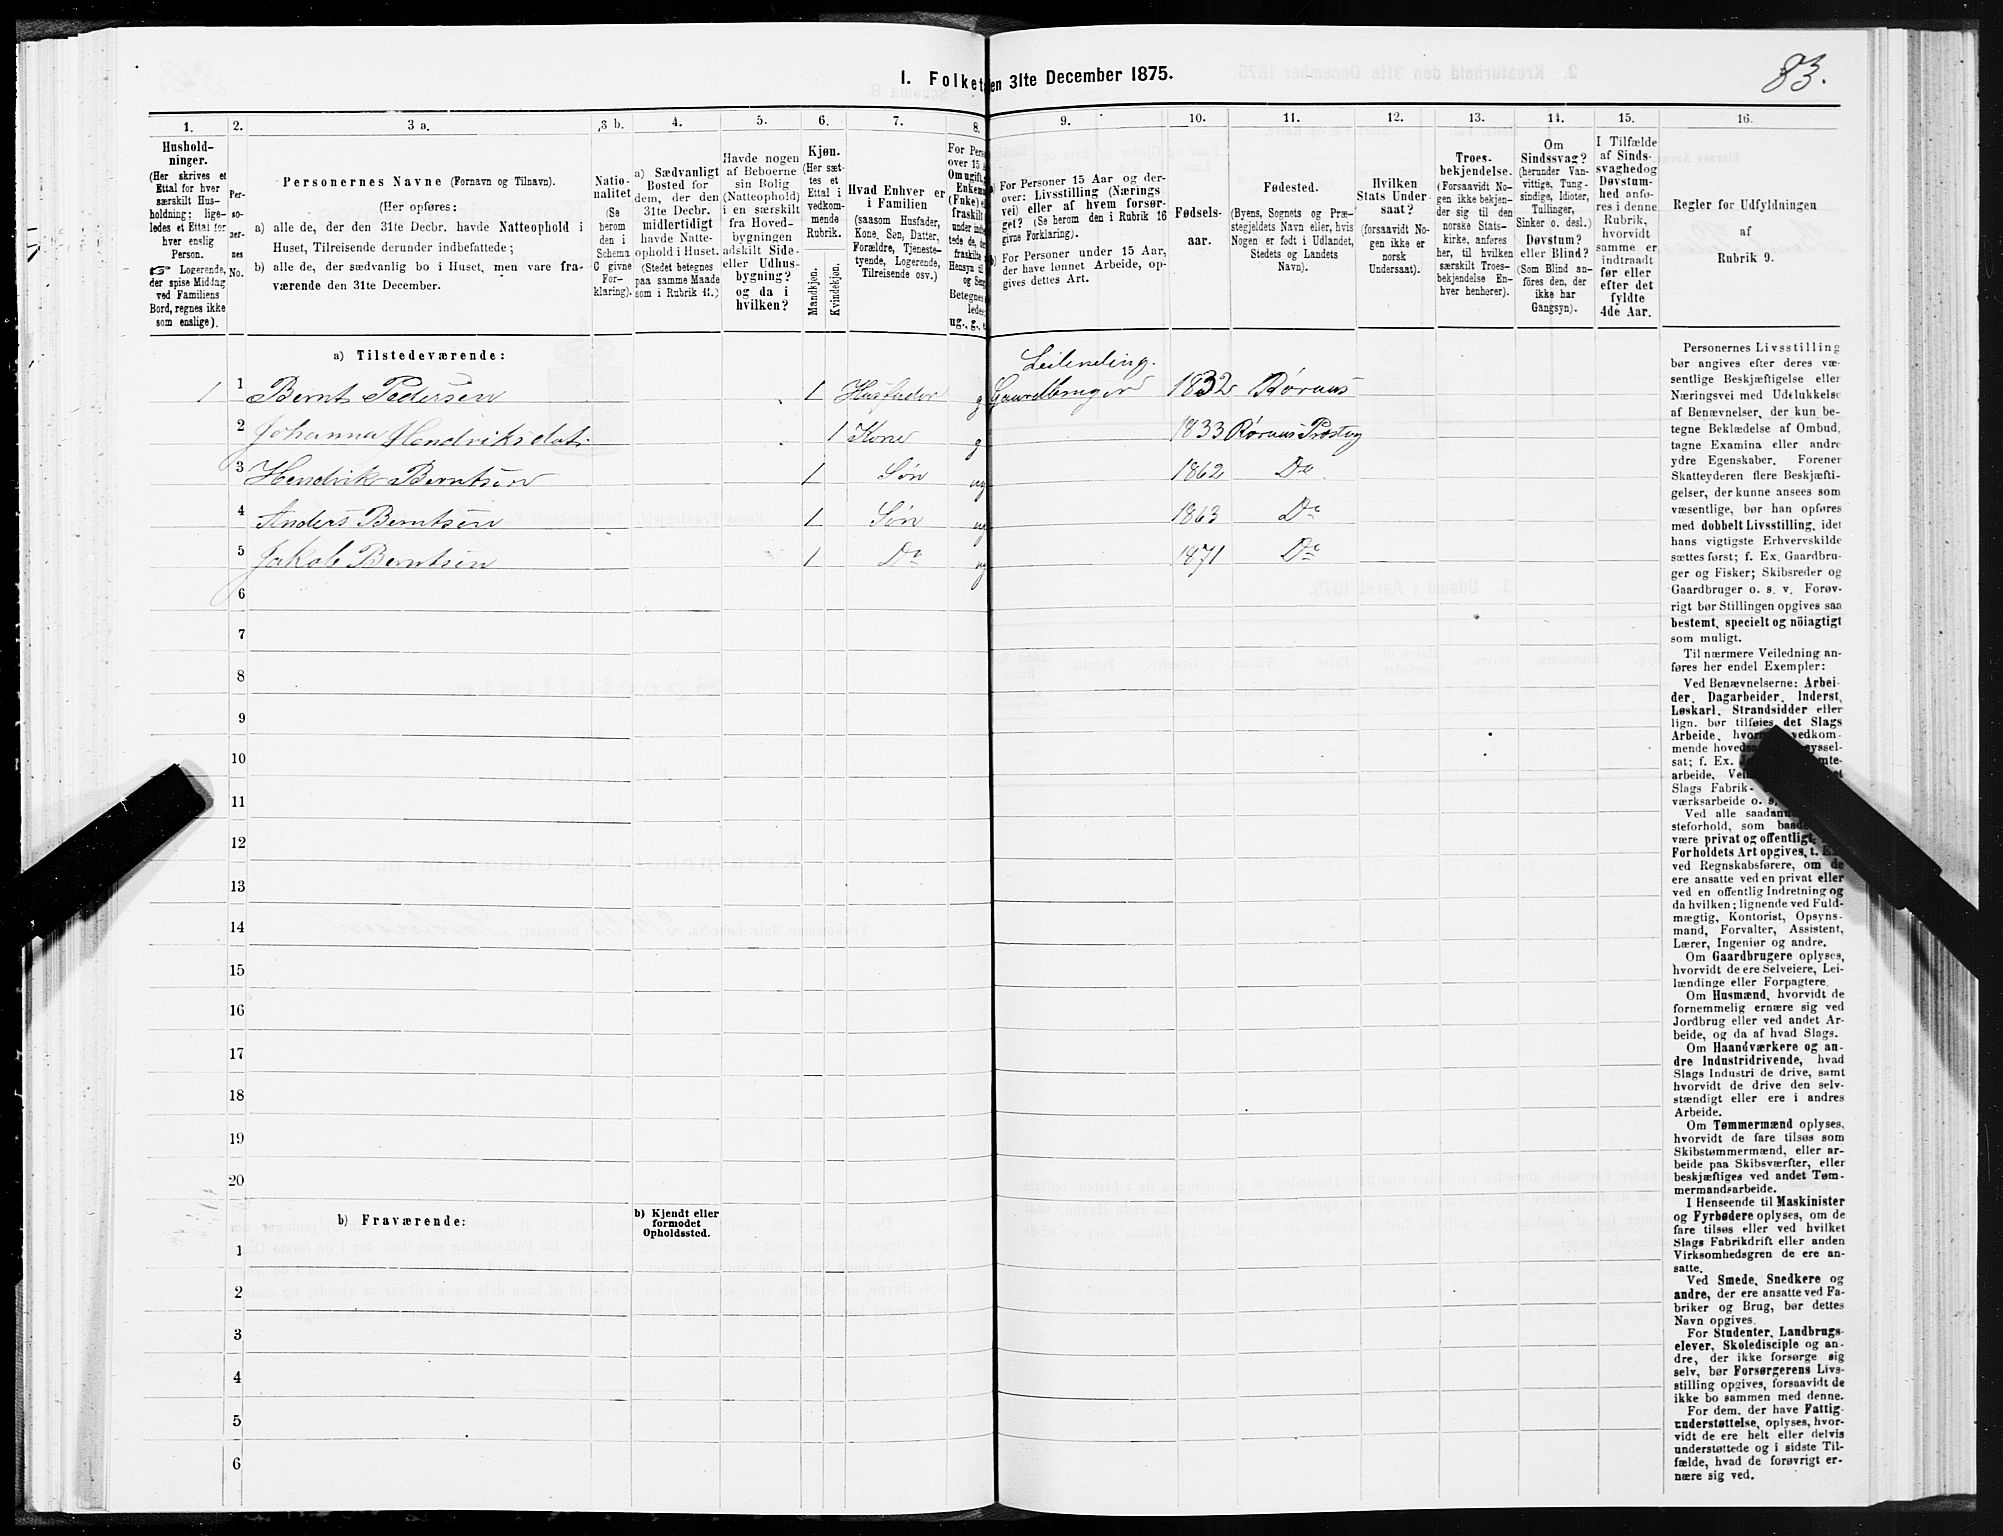 83.
I. Folket en 31te December 1875.
1. 2. 3 a. 3 b. 4. 5. 6. 7. 8. 9. 10. 11. 12. 13. 14. 15. 16.
Hushold-
ninger.
(Her skrives et
Ettal for hver
særskilt Hus-
holdning; lige-
ledes et Ettal for
hver enslig
Person.
☞ Logerende,
der spise Middag
ved Familiens
Bord, regnes ikke
som enslige).
Per-
so-
ner-
nes
No.
Personernes Navne (Fornavn og Tilnavn).
(Her opføres:
a) alle de, der den 31te Decbr. havde Natteophold i
Huset, Tilreisende derunder indbefattede;
b) alle de, der sædvanlig bo i Huset, men vare fra-
værende den 31te December.
Natio-
nalitet
(Se
herom
den i
Schema
C givne
For-
klaring).
a) Sædvanligt
Bosted for
dem, der den
31te Decbr.
midlertidigt
havde Natte-
ophold i Huset.
(Stedet betegnes
paa samme Maade
som i Rubrik 11.)
Havde nogen
af Beboerne
sin Bolig
(Natteophold)
i en særskilt
fra Hoved-
bygningen
adskilt Side-
eller Udhus-
bygning?
og da i
hvilken?
Kjøn.
(Her sæt-
tes et
Ettal i
vedkom-
mende
Rubrik.
Mandkjøn.
Kvindekjøn.
Hvad Enhver er
i Familien
(saasom Husfader,
Kone, Søn, Datter,
Forældre, Tjeneste-
tyende, Logerende,
Tilreisende osv.)
For Pers
over 15
Om ugift,
Enkem
(Enke)
fraskilt
ug., g.,
a) For Personer 15 Aar og der-
over: Livsstilling (Nærings
vei) eller af hvem forsør-
get? (Se herom den i Rubrik 16
givne Forklaring).
b) For Personer under 15 Aar,
der have lønnet Arbeide, op-
gives dettes Art.
Fødsels-
aar.
Fødested.
(Byens, Sognets og Præ-
stegjeldets Navn eller, hvis
Nogen er født i Udlandet,
Stedets og Landets
Navn).
Hvilken
Stats Under
saat?
(forsaavidt No-
gen ikke er
norsk
Undersaat).
Troes-
bekjendelse.
(Forsaavidt No-
gen ikke bekjen-
der sig til den
norske Stats-
kirke, anføres
her, til hvilken
særskilt Troes-
bekjendelse En-
hver henhører).
Om
Sindssvag?
(herunder Van-
vittige, Tung-
sindige, Idioter,
Tullinger,
Sinker o. desl.)
Døvstum?
eller Blind?
(Som Blind an-
føres den, der
ikke har
Gangsyn).
I Tilfælde
af Sinds-
svaghed og
Døvstum-
hed anfø-
res i denne
Rubrik,
hvorvidt
samme er
indtraadt
før eller
efter det
fyldte
4de Aar.
Regler for Udfyldningen
af
Rubrik 9.
a) Tilstedeværende:
Leilending.
1 1 Bernt Pedersen 1 Husfader g Gaardbruger 1832 Røraas
2 Johanna Hendriksdat. 1 Kone g 1833 Røraas Præstg
3 Hendrik Berntsen 1 Søn ug 1862 Do
4 Anders Berntsen 1 Søn ug 1863 Do
5 Jakob Berntsen 1 Do ug 1871 Do
6
7
8
9
10
11
12
13
14
15
16
17
18
19
20
b) Fraværende:
b) Kjendt eller
formodet
Opholdssted.
1
2
3
4
5
6
Personernes Livsstilling
bør angives efter deres væ-
sentlige Beskjæftigelse eller
Næringsvei med Udelukkelse
af Benævnelser, der kun be-
tegne Beklædelse af Ombud,
tagne Examina eller andre
ydre Egenskaber. Forener
Skatteyderen flere Beskjæfti-
gelser, der kunne ansees som
væsentlige, bør han opføres
med dobbelt Livsstilling, idet
hans vigtigste Erhvervskilde
sættes først; f. Ex. Gaardbru-
ger og Fisker; Skibsreder og
Gaardbruger o. s. v. Forøv-
rigt bør Stillingen opgives saa
bestemt, specielt og nöiagtigt
som muligt.
Til nærmere Veiledning an-
føres her endel Exempler:
Ved Benævnelserne: Arbei-
der, Dagarbeider, Inderst,
Løskarl, Strandsidder eller
lign. bør tilføies det Slags
Arbeide, vedkom-
mende ysset-
sat; f. Ex. mte-
arbeide,
Slags Fabrik-
værksarbeide o. s.
Ved alle
steforhold, som
være privat og offentligt,
Forholdets Art opgives, t. Ex
ved Regnskabsførere, om de
ere ansatte ved en privat eller
ved en offentlig Indretning og
da hvilken; lignende ved Fuld-
mægtig, Kontorist, Opsyns-
mand, Forvalter, Assistent,
Lærer, Ingeniør og andre.
Om Gaardbrugere oplyses,
hvorvidt de ere Selveiere, Lei-
lændinge eller Forpagtere.
Om Husmænd, hvorvidt de
fornemmelig ernære sig ved
Jordbrug eller ved andet Ar-
beide, og da af hvad Slags.
Om Haandværkere og an-
dre Industridrivende, hvad
Slags Industri de drive, samt
hvorvidt de drive den selv-
stændigt eller ere i andres
Arbeide.
Om Tømmermænd oplyses,
hvorvidt de fare tilsøs som
Skibstømmermænd, eller ar-
beide paa Skibsværfter, eller
beskjæftiges ved andet Tøm-
mermandsarbeide.
I Henseende til Maskinister
og Fyrbødere oplyses, om de
fare tilsøs eller ved hvilket
Slags Fabrikdrift eller anden
Virksomhedsgren de ere an-
satte.
Ved Smede, Snedkere og
andre, der ere ansatte ved Fa-
briker og Brug, bør dettes
Navn opgives.
For Studenter, Landbrugs-
elever, Skoledisciple og an-
dre, der ikke forsørge sig
selv, bør Forsørgerens Livs-
stilling opgives, forsaavidt de
ikke bo sammen med denne.
For dem, der have Fattig-
understøttelse, oplyses, hvor-
vidt de ere helt eller delvis
understøttede og i sidste Til-
fælde, hvad de forøvrigt er-
nære sig ved.